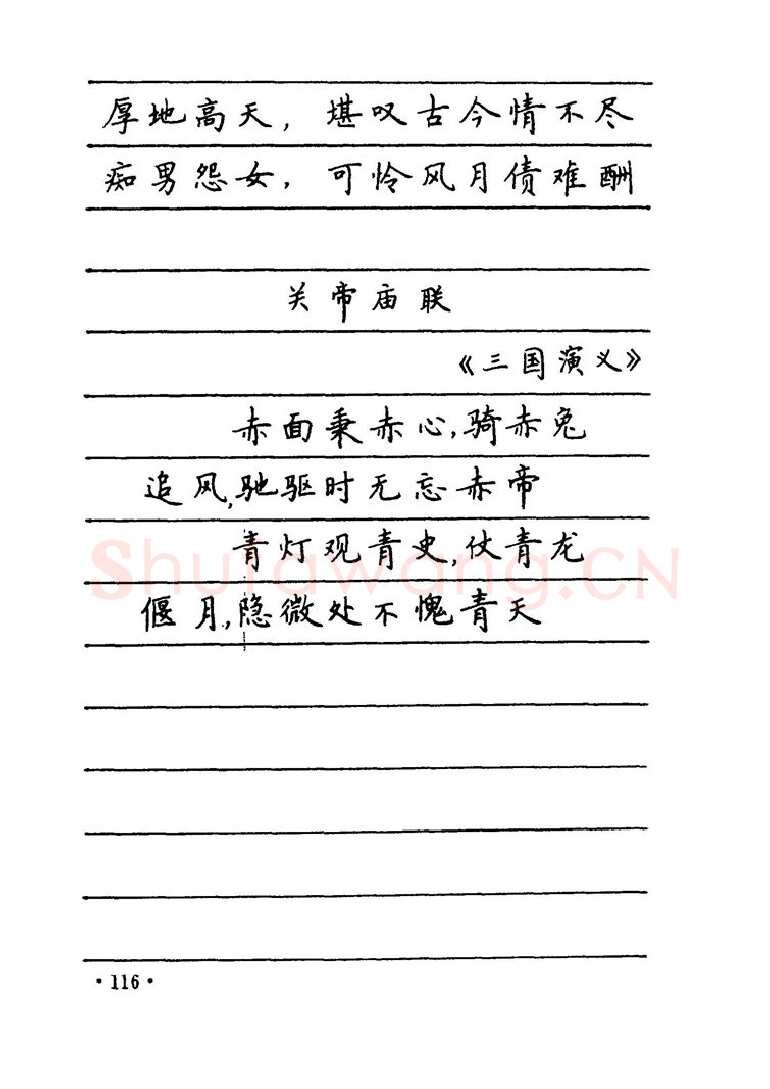 厚地高天，堪叹古今情不尽
痴男怨女，可怜风月债难酬
关帝庙联
《三国演义》
赤面秉赤心,骑赤兔
追风,驰驱时无忘赤帝
青灯观青史,仗青龙
偃月,隐微处不愧青天
shufawang.CN
·116·